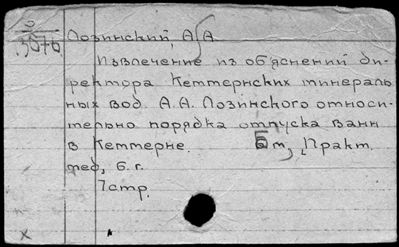 3676 Лозинский, А.А.
Извлечение из объяснений ди-
ректора Кеммернских минераль
ных вод А.А. Лозинского относи-
тельно порядка отпуска ванн
в Кеммерне. Б. м., Практ.
мед, б. г.
7стр.
х